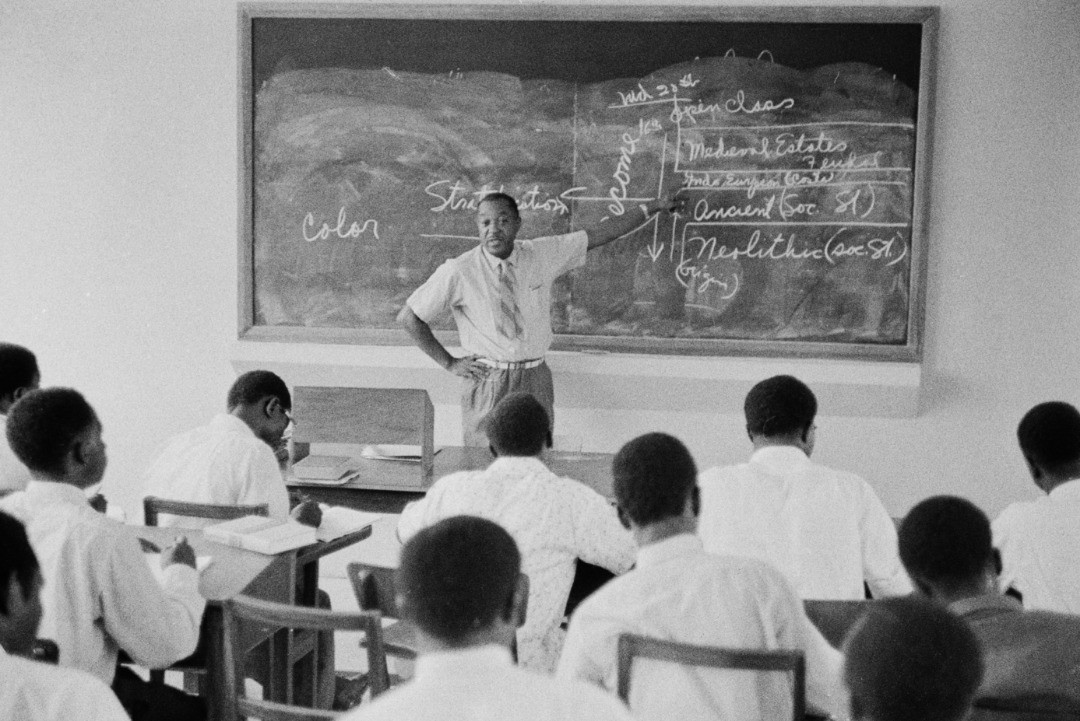 Color
Stratification
econo
mid 20th
16th
open class
Medieval Estates
Feudal
Indo Europea (Caste)
Ancient (Soc. St)
Neolithic (soc. St.)
(origin)